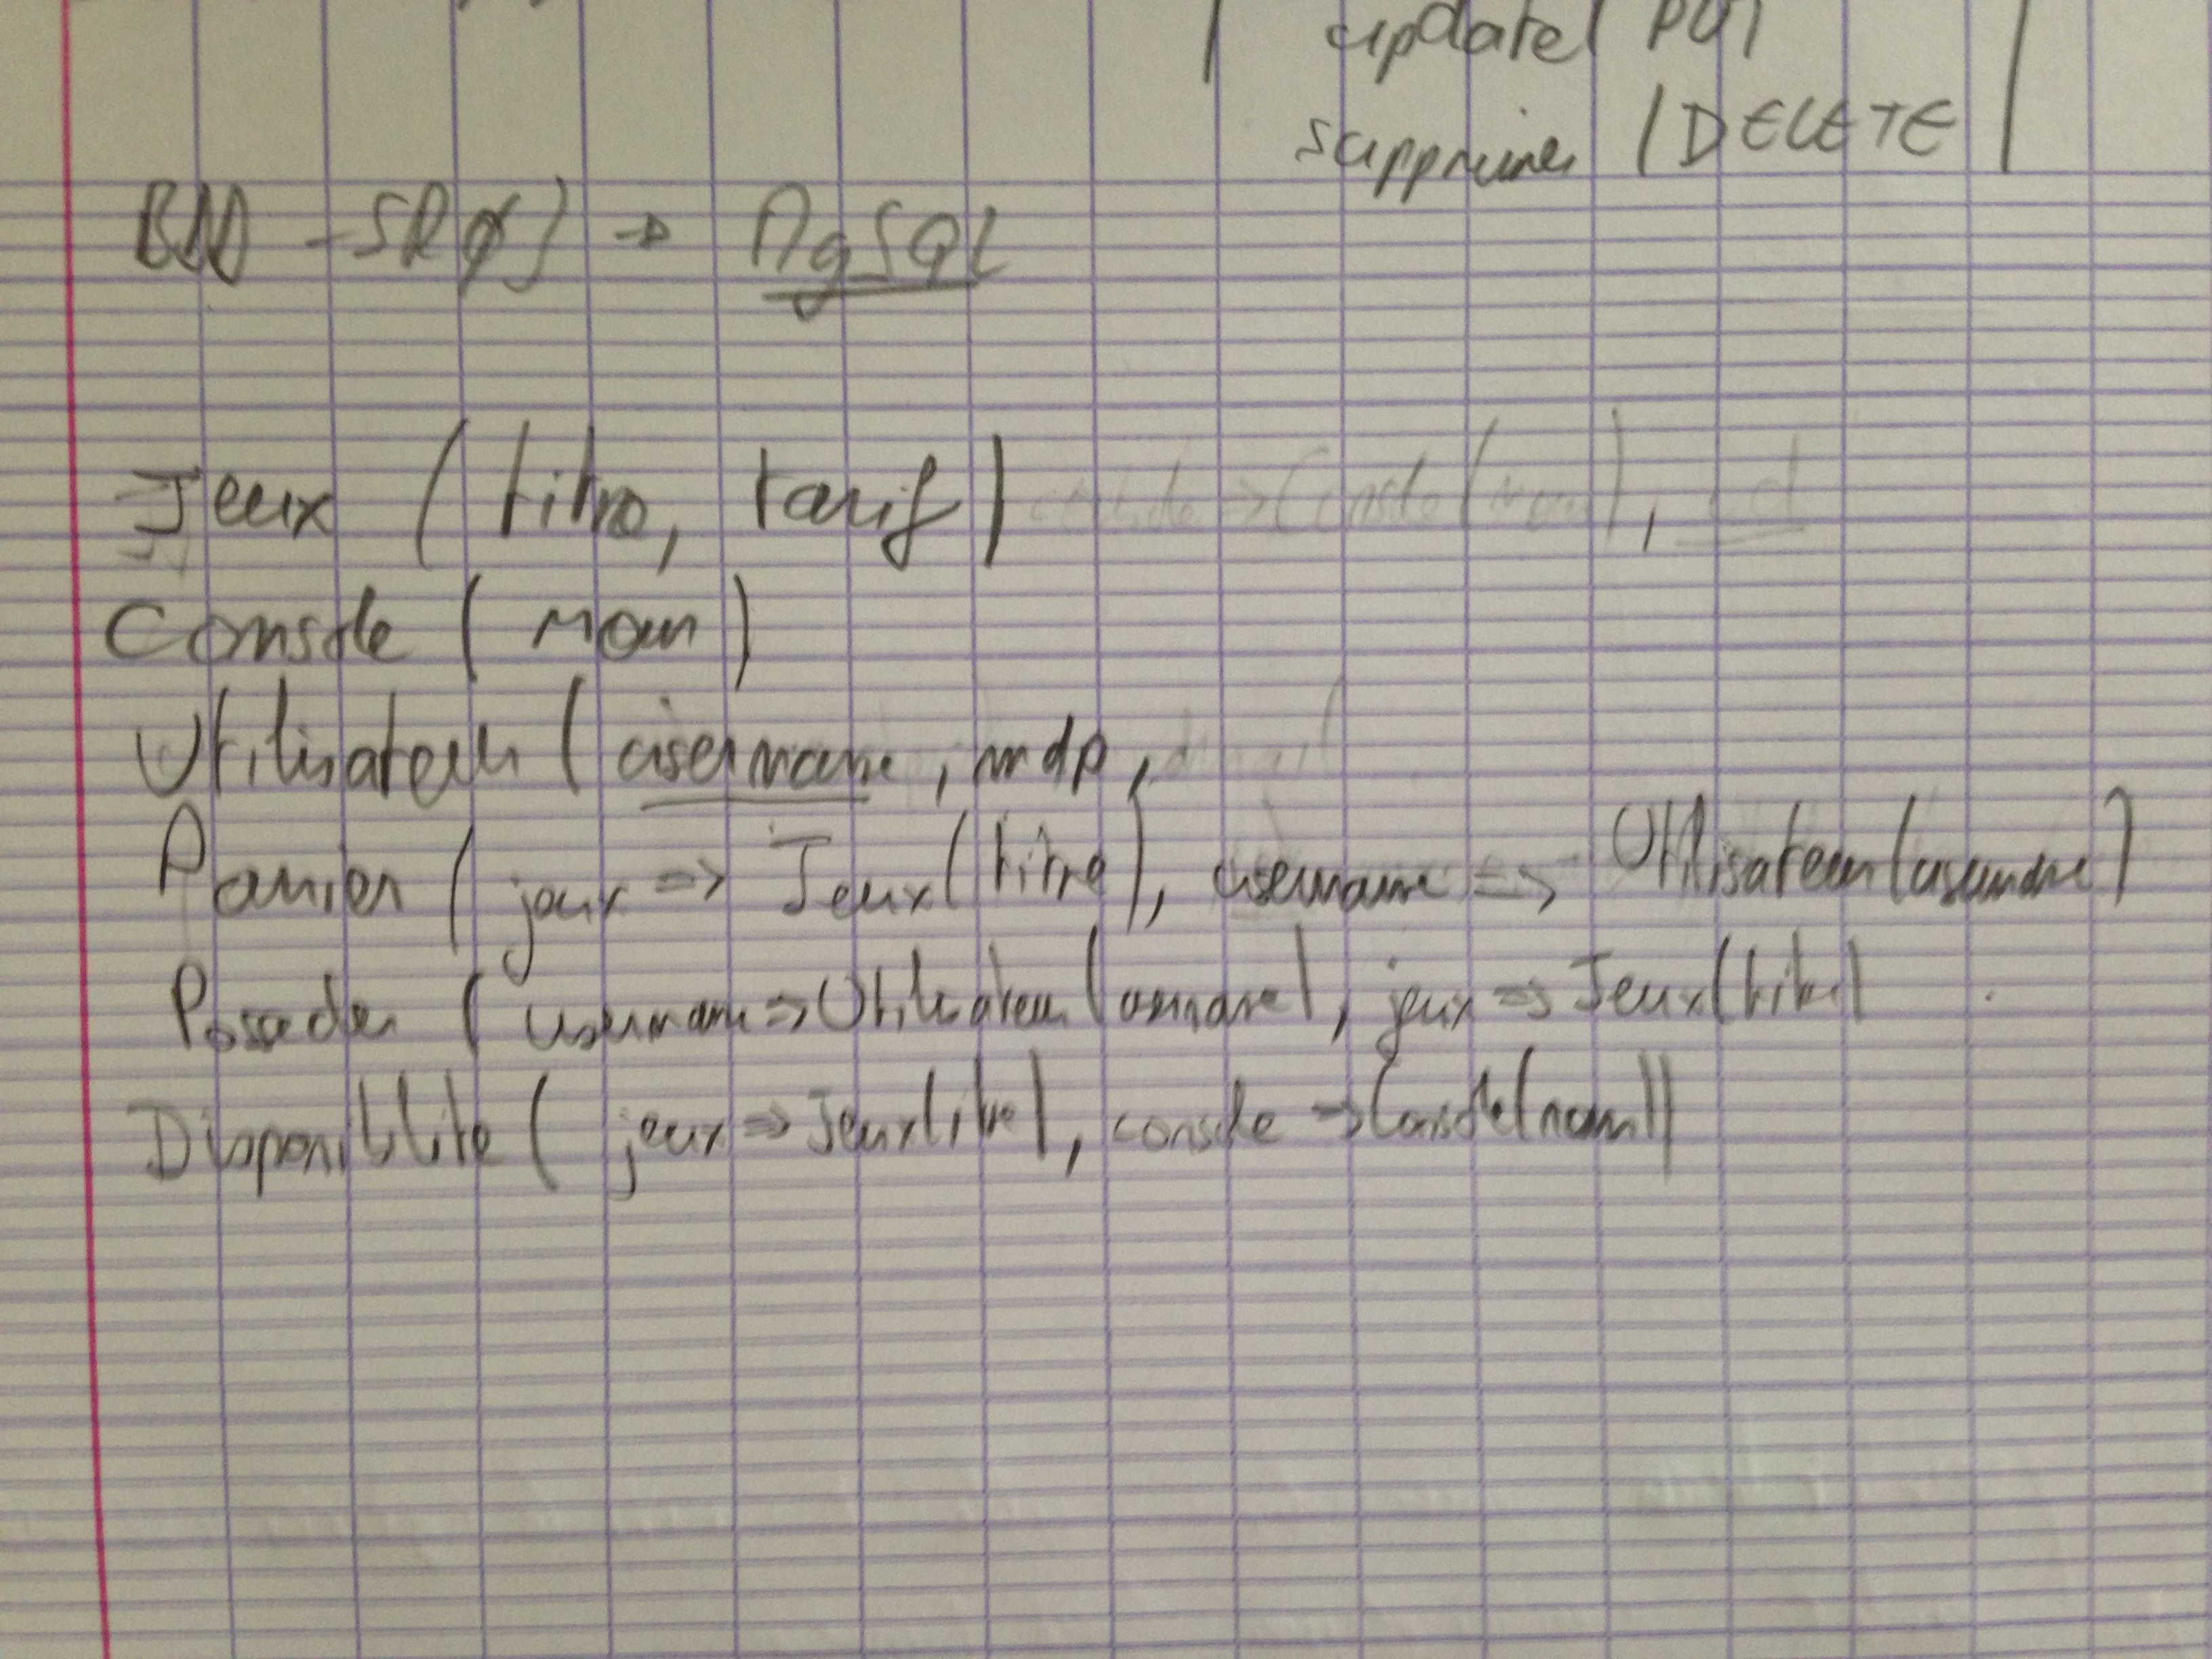 update( PUT
supprime (DELETE)
→ PgSQL
Jeux (titre, tarif)
Console ( nom )
Utilisateur ( username, mdp,
Panier ( jeux => Jeux(titre), username => Utilisateur(username)
Posseder ( username => Utilisateur(username), jeux => Jeux(titre)
Disponibilite ( jeux => Jeux(titre), console => Console(nom))